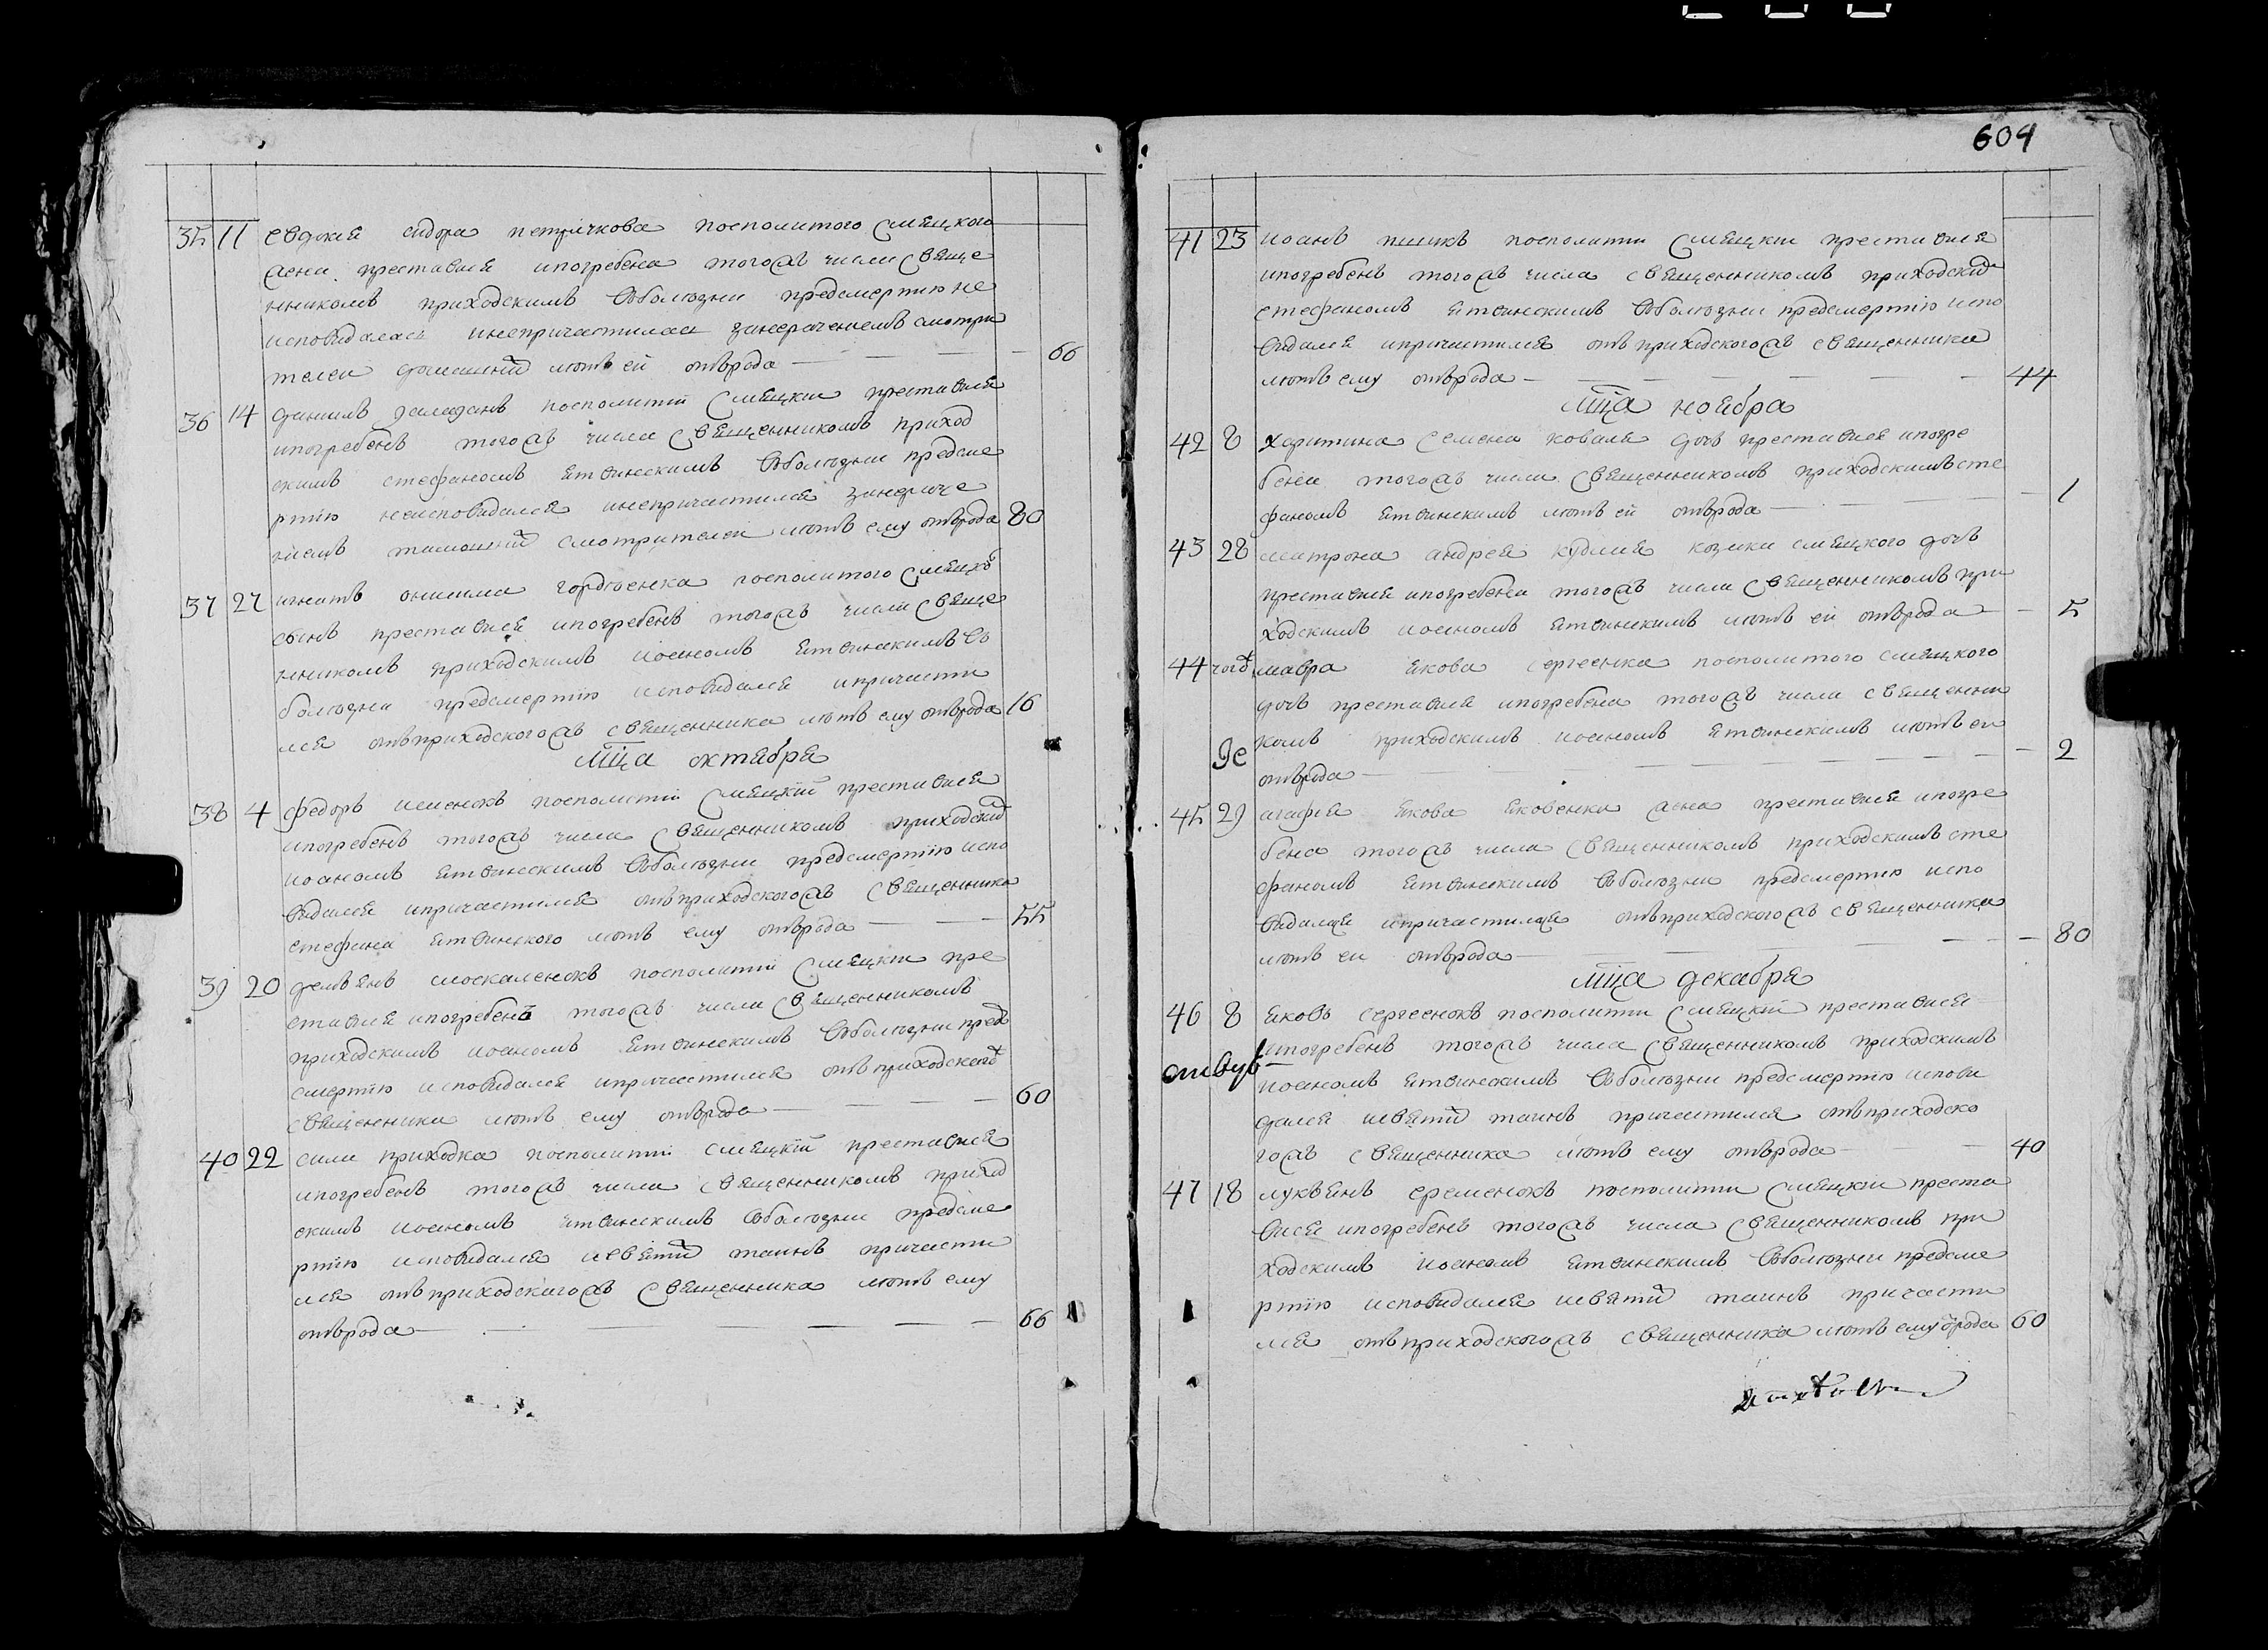 604
35 11 евдокия сидора петричкова посполитого смяцкого
жена преставися ипогребена тогожъ числа свяще
нникомъ приходскимъ въболѣзни предсмертию не
исповидалась инепричастилася занерачениемъ смотри
телей домашний лѣтъ ей отврода — — — 66
36 14 даниилъ посполитий смяцкий преставися
ипогребенъ тогожъ числа священникомъ приход
скимъ стефаномъ ятвинскимъ въболѣзни предсме
ртию неисповидался инепричастился занераче
ниемъ смотрителей лѣтъ ему отврода 80
37 27 игнатъ онисима гордѣенка посполитого смяцко
сынъ преставися ипогребенъ тогожъ числа свяще
нникомъ приходскимъ иоанномъ ятвинскимъ въ
болѣзни предсмертию исповидался ипричасти
лся отъприходскогожъ священника лѣтъ ему отврода 16
мца октября
38 4 федоръ посполитий смяцкий преставися
ипогребенъ тогожъ числа священникомъ приходски
иоаномъ ятвинскимъ въболѣзни предсмертию испо
видался ипричастился отъприходскогожъ священника
стефана ятвинского лѣтъ ему отврода — — 55
39 20 демянъ москаленокъ посполитий смяцкий пре
ставися ипогребенъ тогожъ числа священникомъ
приходскимъ иоаномъ ятвинскимъ въболѣзни пред
смертию исповидался ипричастился отъприходского
священника лѣтъ ему отврода — — — 60
40 22 сила приходка посполитий смяцкий преставися
ипогребенъ тогожъ числа священникомъ приход
скимъ иоаномъ ятвинскимъ въболѣзни предсме
ртию исповидался исвятий таинъ причасти
лся отъприходскагожъ священника лѣтъ ему
отврода — — — 66
41 23 иоанъ посполитий смяцкий преставися
ипогребенъ тогожъ числа священникомъ приходски
стефаномъ ятвинскимъ въболѣзни предсмертию испо
видался ипричастился отъприходскогожъ священника
лѣтъ ему отврода — — — 44
мца ноября
42 8 харитина семена коваля дочь преставися ипогре
бена тогожъ числа священникомъ приходскимъ сте
фаномъ ятвинскимъ лѣтъ ей отврода — — 1
43 28 матрона андрея козака смяцкого дочь
преставися ипогребена тогожъ числа священникомъ при
ходскимъ иоаномъ ятвинскимъ лѣтъ ей отврода — 5
44 тогож мавра якова сергеенка посполитого смяцкого
дочь преставися ипогребена тогожъ числа священни
комъ приходскимъ иоаномъ ятвинскимъ лѣтъ ей
отврода — — — 2
45 29 агафия якова яковенка жена преставися ипогре
бена тогожъ числа священникомъ приходскимъ сте
фаномъ ятвинскимъ въболѣзни предсмертию испо
видалася ипричастилася отъприходскогожъ священника
лѣтъ ей отврода — — — 80
мца декабря
46 8 яковъ сергеенокъ посполитий смяцкий преставися
ипогребенъ тогожъ числа священникомъ приходскимъ
иоаномъ ятвинскимъ въболѣзни предсмертию испови
дался исвятий таинъ причастился отъприходско
гожъ священника лѣтъ ему отврода — — 40
47 18 лукянъ еременокъ посполитий смяцкий преста
вися ипогребенъ тогожъ числа священникомъ при
ходскимъ иоаномъ ятвинскимъ въболѣзни предсме
ртию исповидался исвятий таинъ причасти
лся отъприходскогожъ священника лѣтъ ему отрода 60